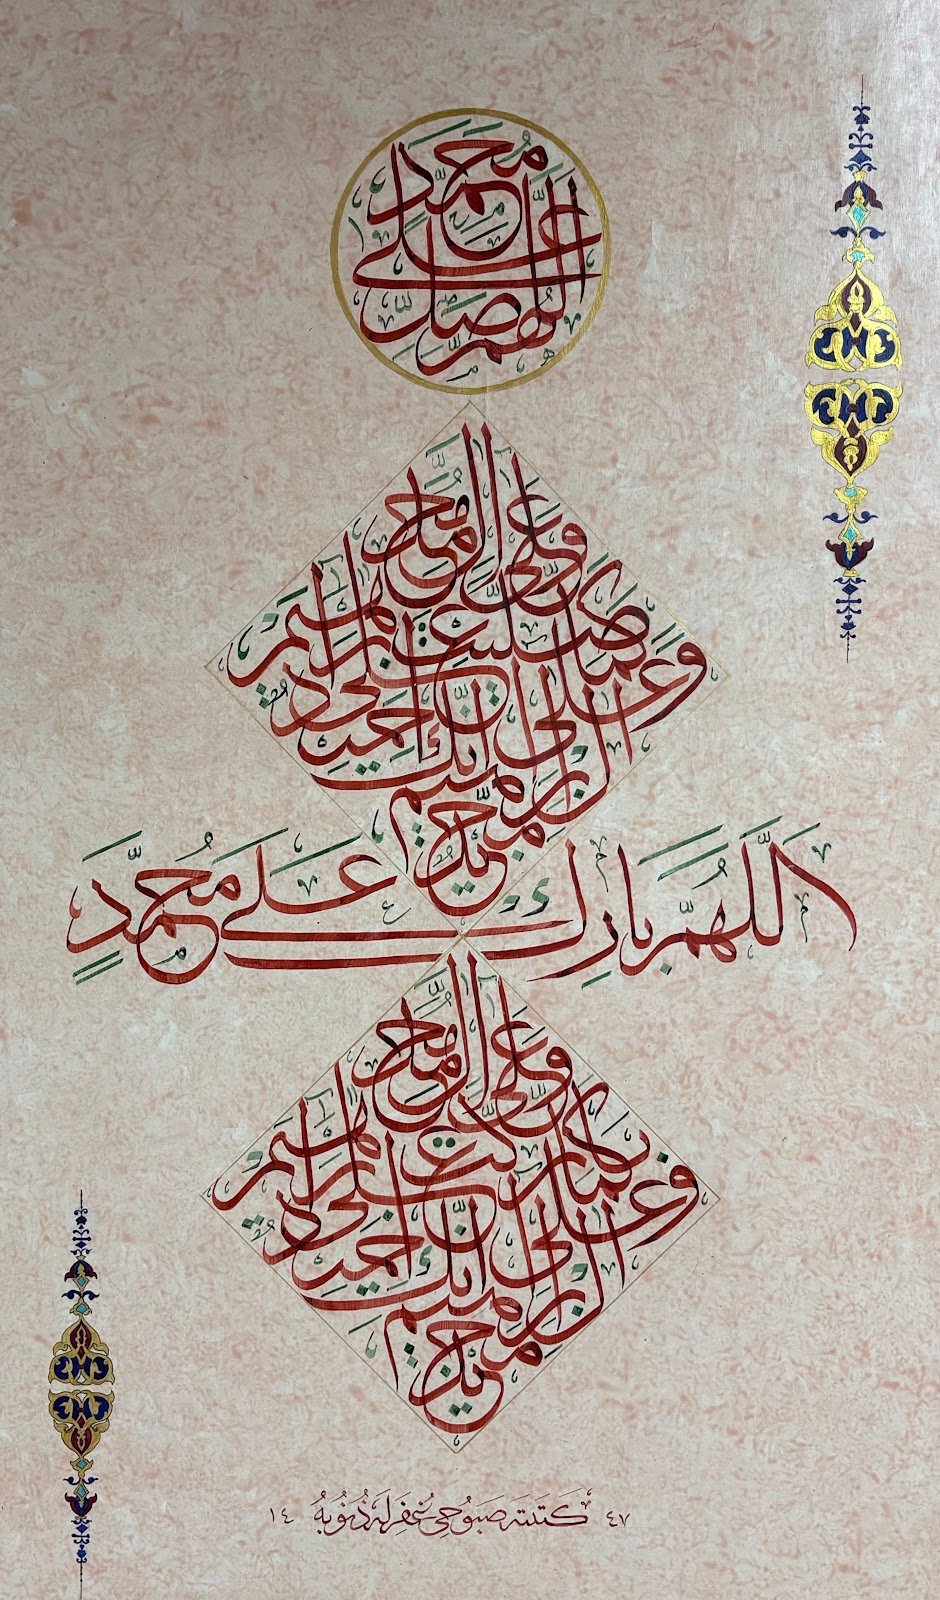 اللهم صل على محمد
وعلى آل محمد كما صليت على إبراهيم وعلى آل إبراهيم إنك حميد مجيد
اللهم بارك على محمد
وعلى آل محمد كما باركت على إبراهيم وعلى آل إبراهيم إنك حميد مجيد
٤٧ كتبته صبوحي غفر له ذنوبه ١٤